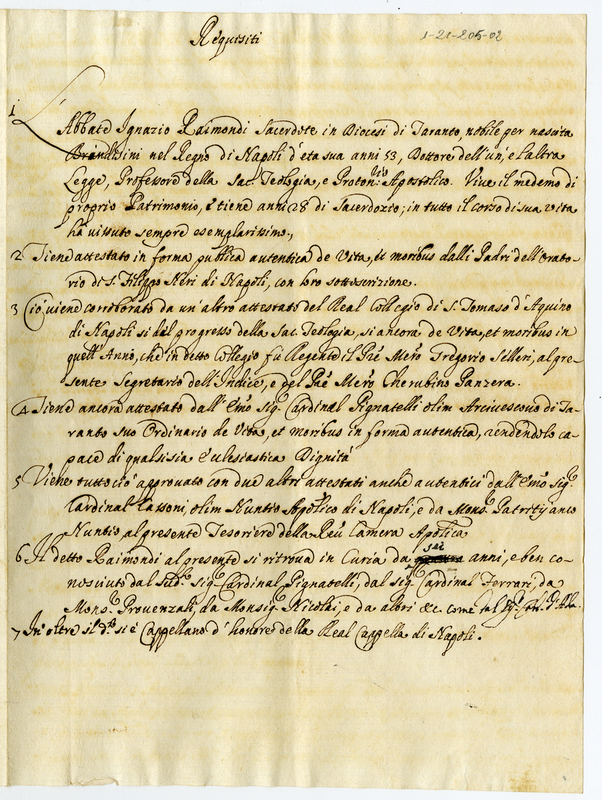 Requisiti
1-21-205-02
1 L'Abbate Ignazio Raimondi Sacerdote in Diocesi di Taranto, nobile per nascita
nel Regno di Napoli d'eta sua anni 53, Dottore dell'un', e l'altra
Legge, Professore della Sac. Teologia, e Proton.rio Apostolico. Vive il medemo di
proprio Patrimonio, e tiene anni 28 di Sacerdozio; in tutto il corso di sua vita
ha vissuto sempre esemplarissimo,
2 Tiene attestato in forma publica autentica de Vita, et moribus dalli Padri dell'Orato-
rio di S. Filippo Neri di Napoli, con loro sottoscrizione.
3 Ciò viene corroborato da un'altro attestato del Real Collegio di S. Tomaso d'Aquino
di Napoli si del progresso della Sac. Teologia, si ancora de Vita, et moribus in
quell'Anno, che in detto Collegio fù Regente il Pre Mero Gregorio Selleri, al pre-
sente Segretario dell'Indice, e del Pre Mero Cherubino Panzera.
4 Tiene ancora attestato dall'Emo Sig. Cardinal Pignatelli olim Arcivescovo di Ta-
ranto suo Ordinario de Vita, et moribus in forma autentica, rendendolo ca-
pace di qualsisia Ecclesiastica Dignità
5 Viene tutto ciò approvato con due altri attestati anche autentici dall'Emo Sig.
Cardinal Cassoni, olim Nuntio Apolico di Napoli, e da Mons. Patritij anco
Nuntio, al presente Tesoriere della Reu. Camera Apolica
6 Il detto Raimondi al presente si ritrova in Curia da sei anni, e ben co-
nosciuto dal Sud. Sig. Cardinal Pignatelli, dal Sig. Cardinal Ferrari, da
Mons. Provenzali, da Monsig. Nicolai, e da altri &c. come dal
7 In oltre il d.o si è Cappellano d'honore della Real Cappella di Napoli.